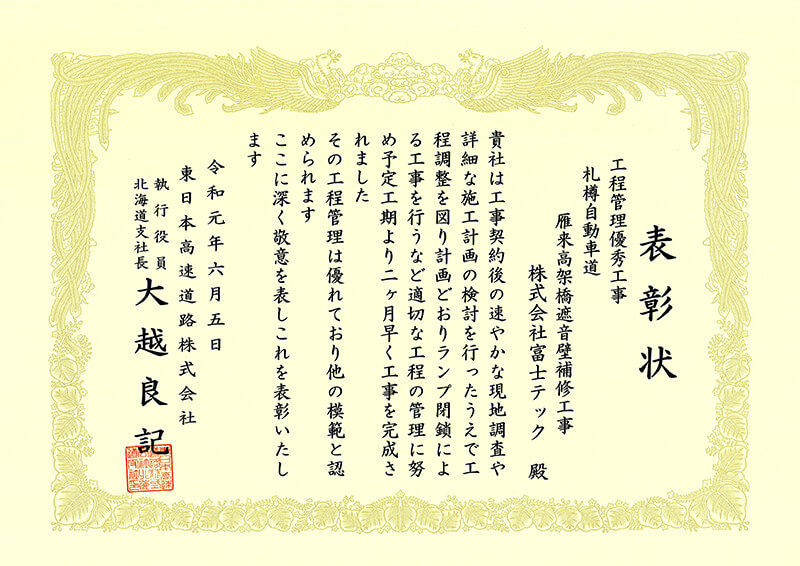 表彰状
工程管理優秀工事
札樽自動車道
雁来高架橋遮音壁補修工事
株式会社富士テック 殿
貴社は工事契約後の速やかな現地調査や
詳細な施工計画の検討を行ったうえで工
程調整を図り計画どおりランプ閉鎖によ
る工事を行うなど適切な工程の管理に努
め予定工期より二ヶ月早く工事を完成さ
れました
その工程管理は優れており他の模範と認
められます
ここに深く敬意を表しこれを表彰いたし
ます
令和元年六月五日
東日本高速道路株式会社
執行役員
北海道支社長
大越良記